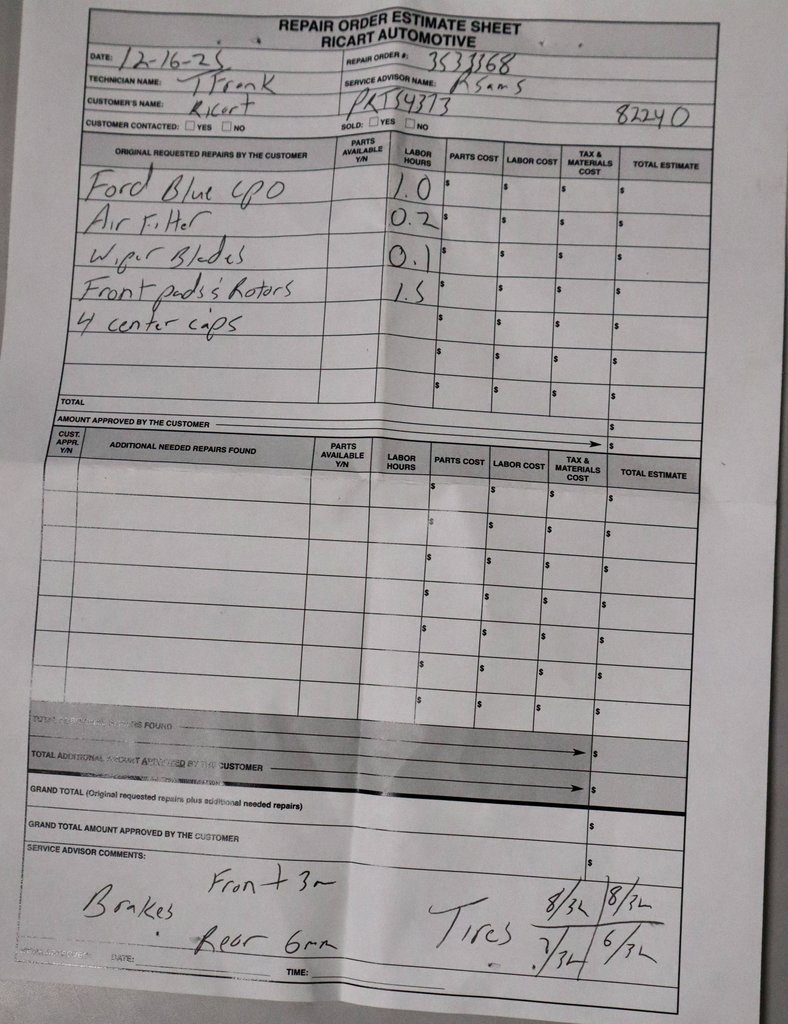 REPAIR ORDER ESTIMATE SHEET
RICART AUTOMOTIVE
DATE: 12-16-25 REPAIR ORDER #: 3533368
TECHNICIAN NAME: T Frank SERVICE ADVISOR NAME: R Sams
CUSTOMER'S NAME: Ricart PRTS4373 82240
CUSTOMER CONTACTED: ☐ YES ☐ NO SOLD: ☐ YES ☐ NO
ORIGINAL REQUESTED REPAIRS BY THE CUSTOMER PARTS AVAILABLE Y/N LABOR HOURS PARTS COST LABOR COST TAX & MATERIALS COST TOTAL ESTIMATE
Ford Blue CPO 1.0 $ $ $ $
Air Filter 0.2 $ $ $ $
Wiper Blades 0.1 $ $ $ $
Front pads & Rotors 1.5 $ $ $ $
4 center caps $ $ $ $
$ $ $ $
$ $ $ $
TOTAL $
AMOUNT APPROVED BY THE CUSTOMER $
CUST. APPR. Y/N ADDITIONAL NEEDED REPAIRS FOUND PARTS AVAILABLE Y/N LABOR HOURS PARTS COST LABOR COST TAX & MATERIALS COST TOTAL ESTIMATE
$ $ $ $
$ $ $ $
$ $ $ $
$ $ $ $
$ $ $ $
$ $ $ $
$ $ $ $
FOUND $
TOTAL ADDITIONAL AMOUNT APPROVED BY THE CUSTOMER $
GRAND TOTAL (Original requested repairs plus additional needed repairs) $
GRAND TOTAL AMOUNT APPROVED BY THE CUSTOMER $
SERVICE ADVISOR COMMENTS:
Brakes Front 3m
Rear 6mm
Tires 8/32 8/32
/32 6/32
DATE: TIME: